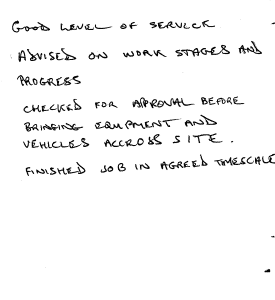 GOOD LEVEL OF SERVICE
ADVISED ON WORK STAGES AND
PROGRESS
CHECKED FOR APROVAL BEFORE
BRINGING EQUIPMENT AND
VEHICLES ACCROSS SITE.
FINISHED JOB IN AGREED TIMESCALE